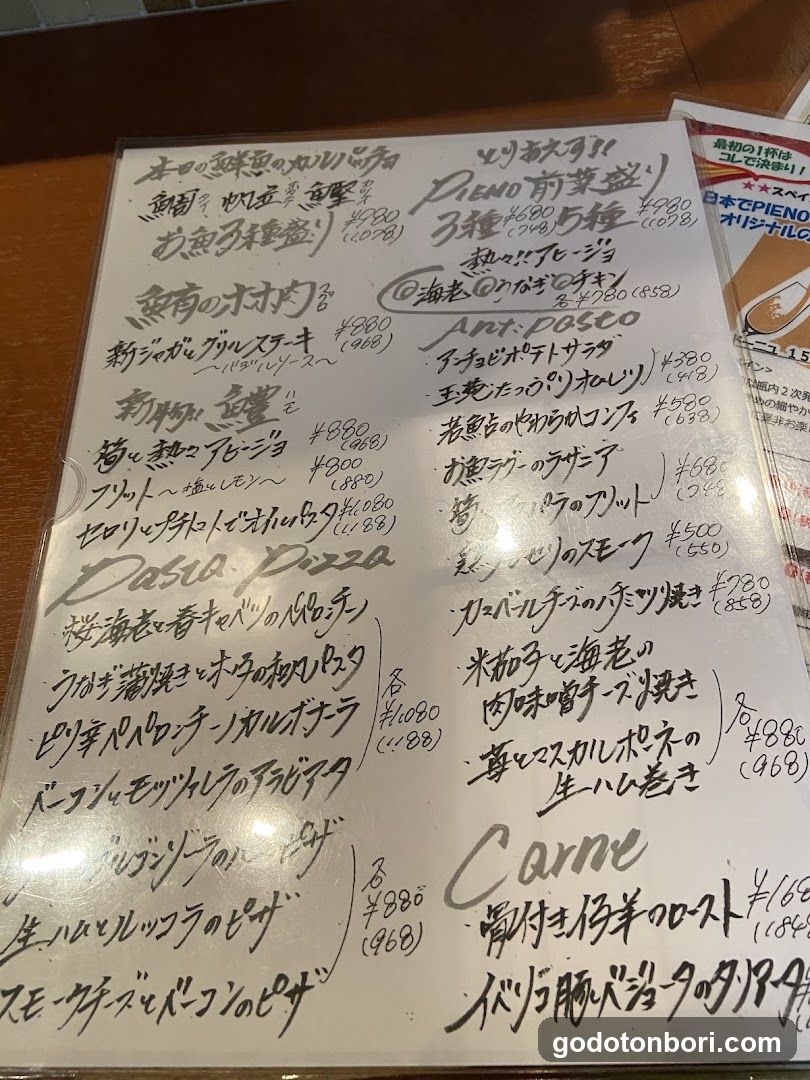 本日の鮮魚のカルパッチョ
鯛 タイ 帆立 ホタテ 鰹 カツオ
お魚3種盛り ¥980
(1078)
鮪のホホ肉 マグロ
新ジャガとグリルステーキ ¥880
(968)
～バジルソース～
鱧 ハモ
筍と熱々アヒージョ ¥880
(968)
フリット～塩とレモン～ ¥800
(880)
セロリとプチトマトでオイルパスタ ¥1,080
(1188)
Pasta・Pizza
桜海老と春キャベツのペペロンチーノ
うなぎ蒲焼きと木の子の和風パスタ
ピリ辛ペペロンチーノカルボナーラ
ベーコンとモッツァレラのアラビアータ
各
¥1,080
(1188)
ゴルゴンゾーラの ピザ
生ハムとルッコラのピザ
スモークチーズとベーコンのピザ
各
¥880
(968)
とりあえず!!
PIENO前菜盛り
3種 ¥680 5種 ¥980
(748) (1078)
熱々!!アヒージョ
@海老 @うなぎ @チキン
各¥780(858)
Antipasto
・アンチョビポテトサラダ
・玉葱たっぷりオムレツ
¥380
(418)
・若鶏 のやわらかコンフィ ¥580
(638)
・お魚ラグーのラザニア
・筍 のフリット
¥680
(748
・ のスモーク ¥500
(550)
・カマンベールチーズのハチミツ焼き ¥780
(858)
・米茄子と海老の
肉味噌チーズ焼き
・苺とマスカルポーネの
生ハム巻き
各
¥880
(968)
Carne
・骨付き仔羊のロースト ¥168
(184
・イベリコ豚ベジョータのタリアータ
最初の1杯は
コレで決まり！
★★スペイ
日本でPIENO
オリジナルの
godotonbori.com